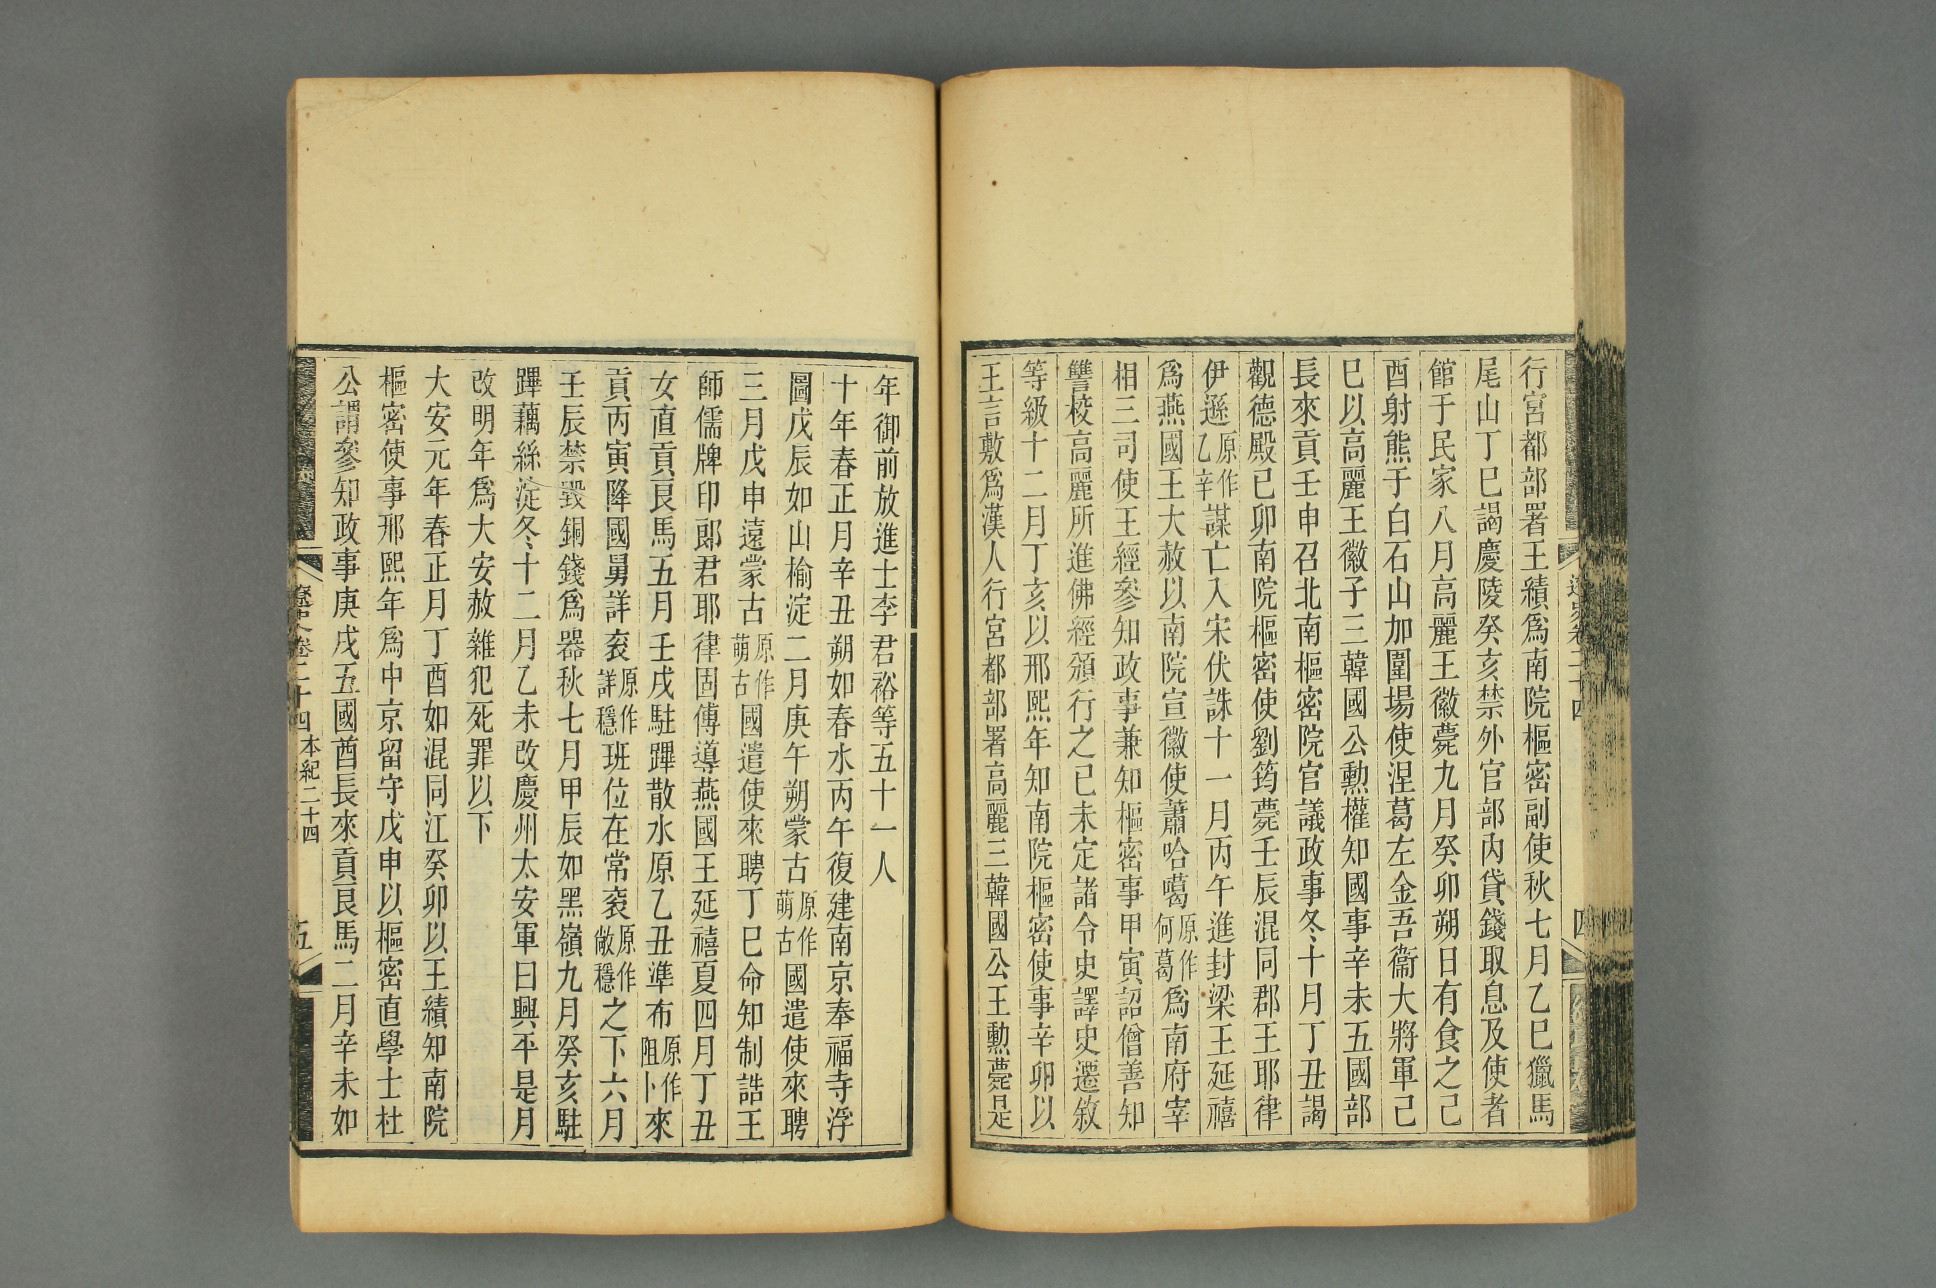 行宮都部署王績爲南院樞密副使秋七月乙巳獵馬
尾山丁巳謁慶陵癸亥禁外官部內貸錢取息及使者
館于民家八月高麗王徽薨九月癸卯朔日有食之己
酉射熊于白石山加圍場使涅葛左金吾衞大將軍己
巳以高麗王徽子三韓國公勲權知國事辛未五國部
長來貢壬申召北南樞密院官議政事冬十月丁丑謁
觀德殿己卯南院樞密使劉筠薨壬辰混同郡王耶律
伊遜原作乙辛謀亡入宋伏誅十一月丙午進封梁王延禧
爲燕國王大赦以南院宣徽使蕭哈噶原作何葛爲南府宰
相三司使王經參知政事兼知樞密事甲寅詔僧善知
讐校高麗所進佛經頒行之己未定諸令史譯史遷敘
等級十二月丁亥以邢熙年知南院樞密使事辛卯以
王言敷爲漢人行宮都部署高麗三韓國公王勲薨是
遼史卷二十四
四
年御前放進士李君裕等五十一人
十年春正月辛丑朔如春水丙午復建南京奉福寺浮
圖戊辰如山榆淀二月庚午朔蒙古原作萌古國遣使來聘
三月戊申遠蒙古原作萌古國遣使來聘丁巳命知制誥王
師儒牌印郎君耶律固傅導燕國王延禧夏四月丁丑
女直貢良馬五月壬戌駐蹕散水原乙丑準布原作阻卜來
貢丙寅降國舅詳袞原作詳穩班位在常袞原作敞穩之下六月
壬辰禁毀銅錢爲器秋七月甲辰如黑嶺九月癸亥駐
蹕藕絲淀冬十二月乙未改慶州太安軍曰興平是月
改明年爲大安赦雜犯死罪以下
大安元年春正月丁酉如混同江癸卯以王績知南院
樞密使事邢熙年爲中京留守戊申以樞密直學士杜
公謂參知政事庚戌五國酋長來貢良馬二月辛未如
遼史卷二十四 本紀二十四
五